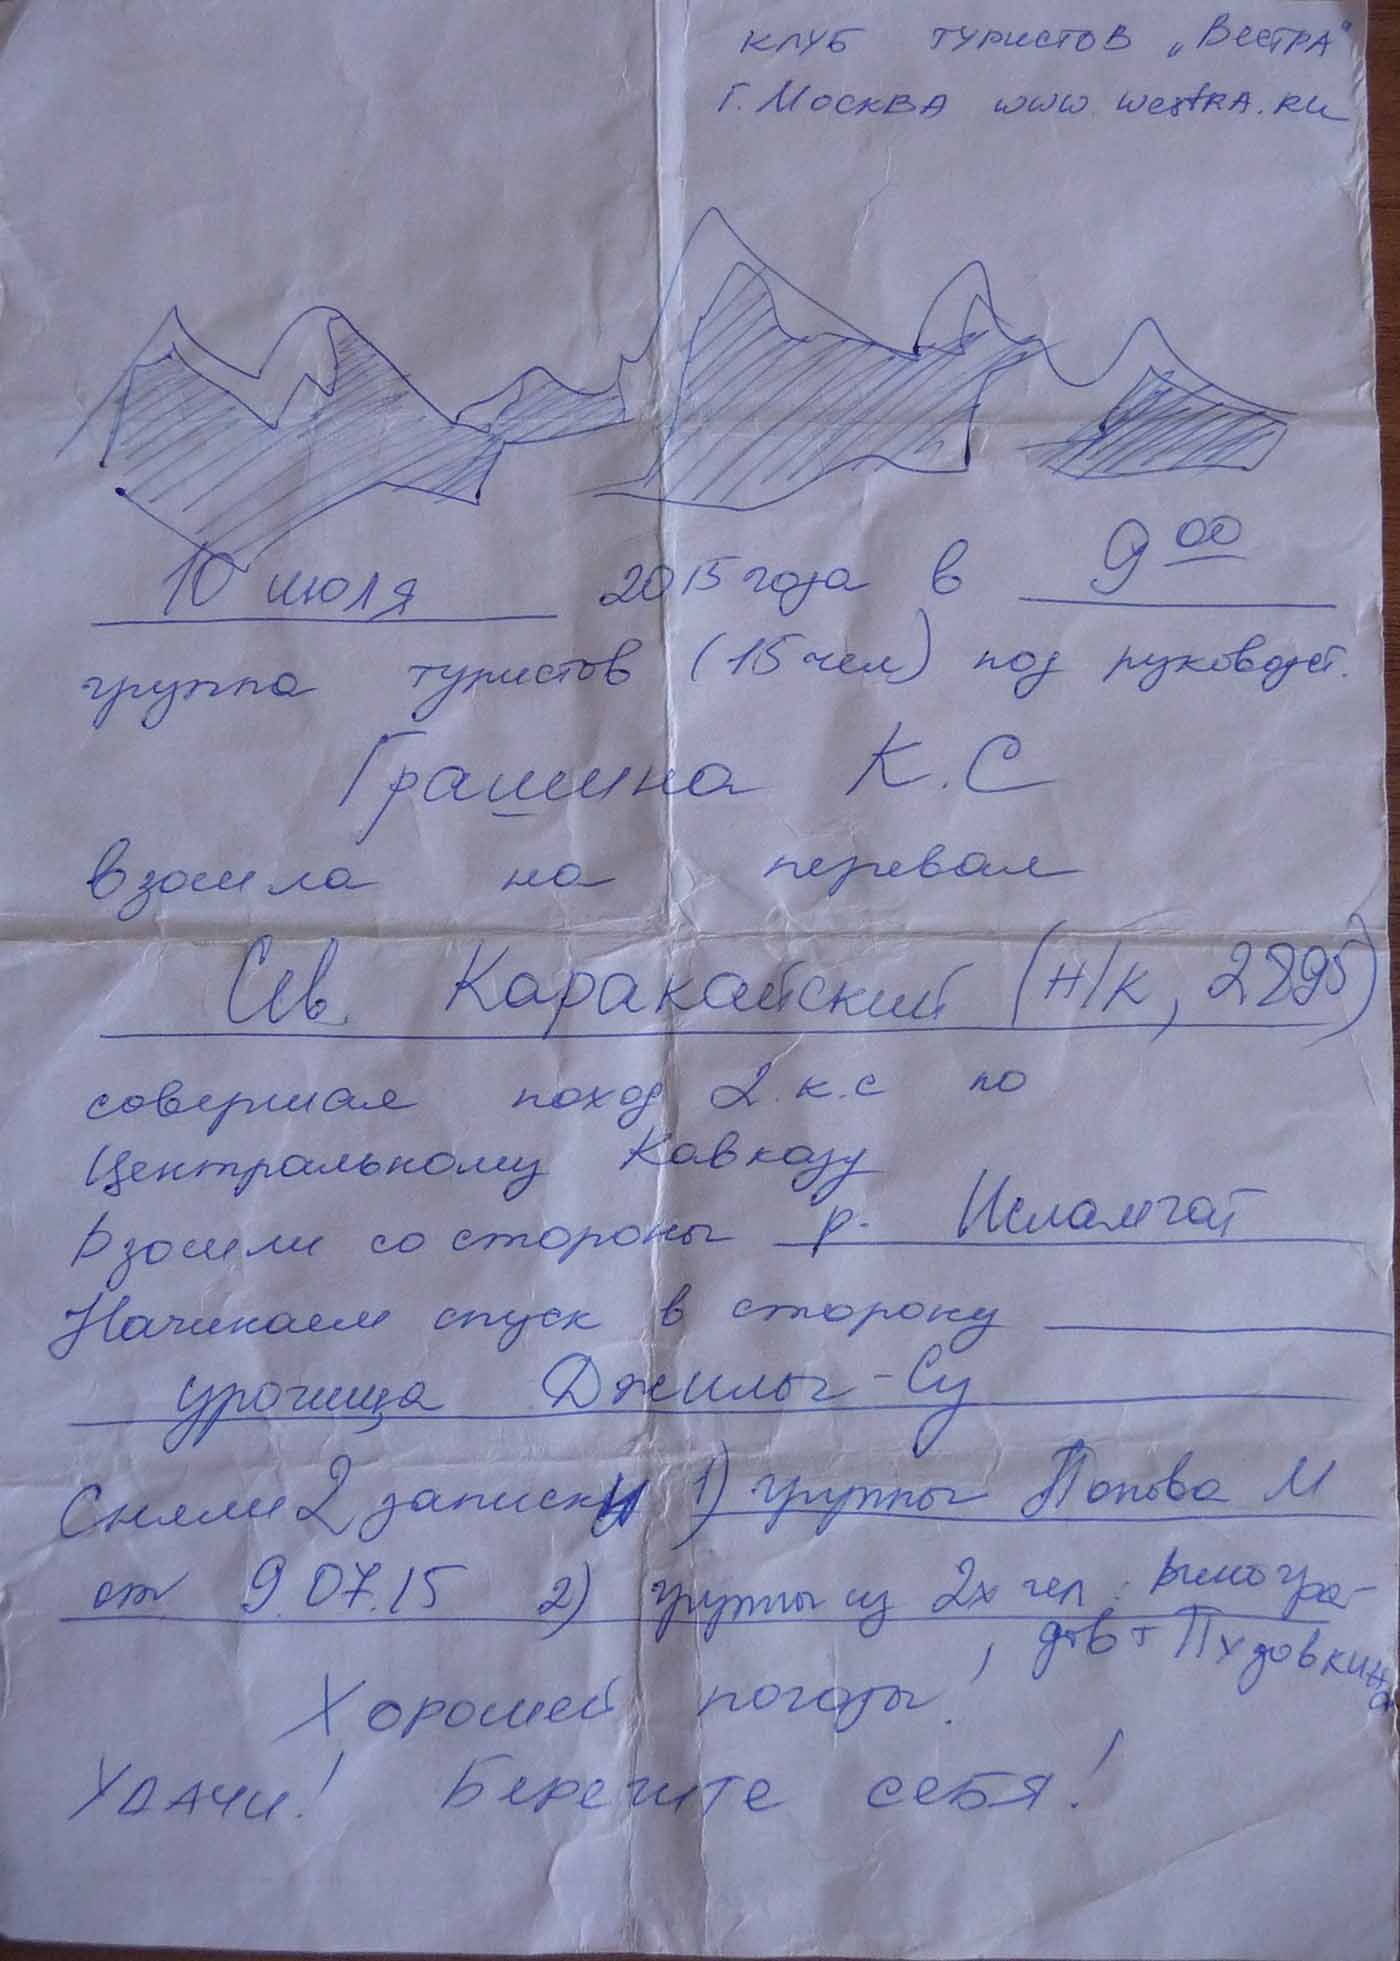 клуб туристов „Вестра"
г. Москва www.westra.ru
10 июля 2015 года в 9 00
группа туристов (15 чел) под руководст.
Грашина К.С
взошла на перевал
Сев. Каракайский (н/к, 2895)
совершая поход 2 к.с по
Центральному Кавказу
Взошли со стороны р. Исламчат
Начинаем спуск в сторону
урочища Джилы-Су
Сняли 2 записки 1) группы Попова М
от 9.07.15 2) группы из 2х чел: Виногра-
дов + Пудовкина
Хорошей погоды!
Удачи! Берегите себя!